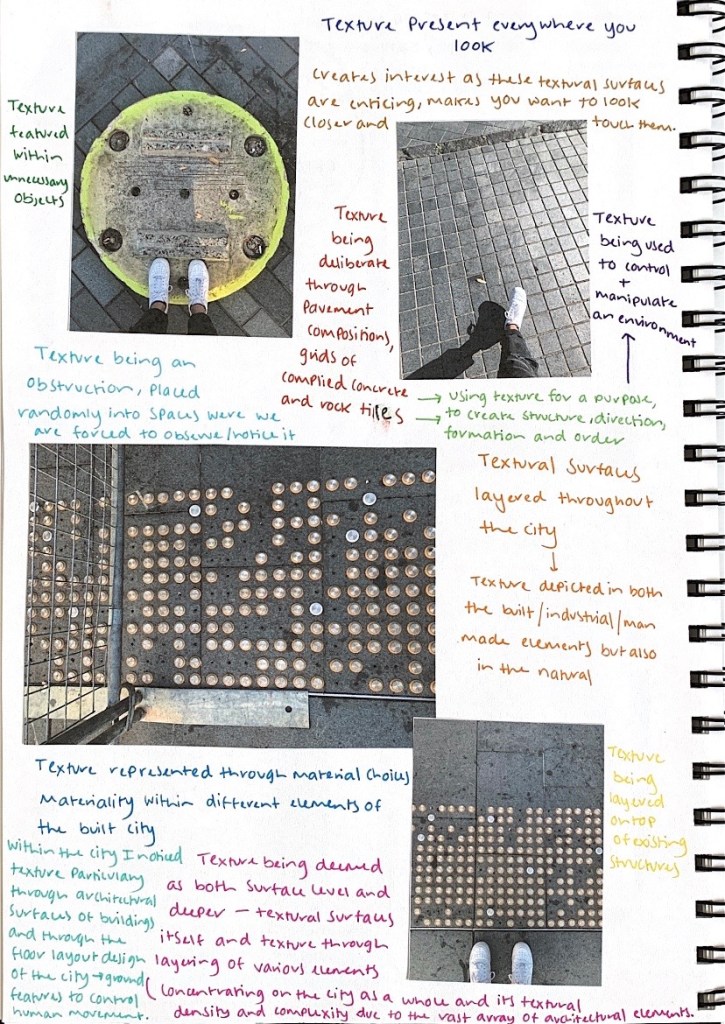 Texture Present everywhere you
look
Creates interest as these textural surfaces
are enticing, makes you want to look
closer and touch them.
Texture
featured
within
unnecessary
objects
Texture
being
deliberate
through
Pavement
compositions,
grids of
complied concrete
and rock tiles
Texture
being used
to control
+
manipulate
an environment
→ Using texture for a purpose,
→ to create structure, direction,
formation and order
Texture being an
obstruction, placed
randomly into spaces were we
are forced to observe/notice it
Textural Surfaces
layered throughout
the city
↓
Texture depicted in both
the built/industrial/man
made elements but also
in the natural
Texture represented through material choices
Materiality within different elements of
the built city
Texture
being
layered
on top
of existing
structures
Within the city I noticed
texture particulary
through architectural
surfaces of buildings
and through the
floor layout design
of the city → ground
features to control
human movement.
Texture being deemed
as both surface level and
deeper - textural surfaces
itself and texture through
layering of various elements
(Concentrating on the city as a whole and its textural
density and complexity due to the vast array of architectural elements.